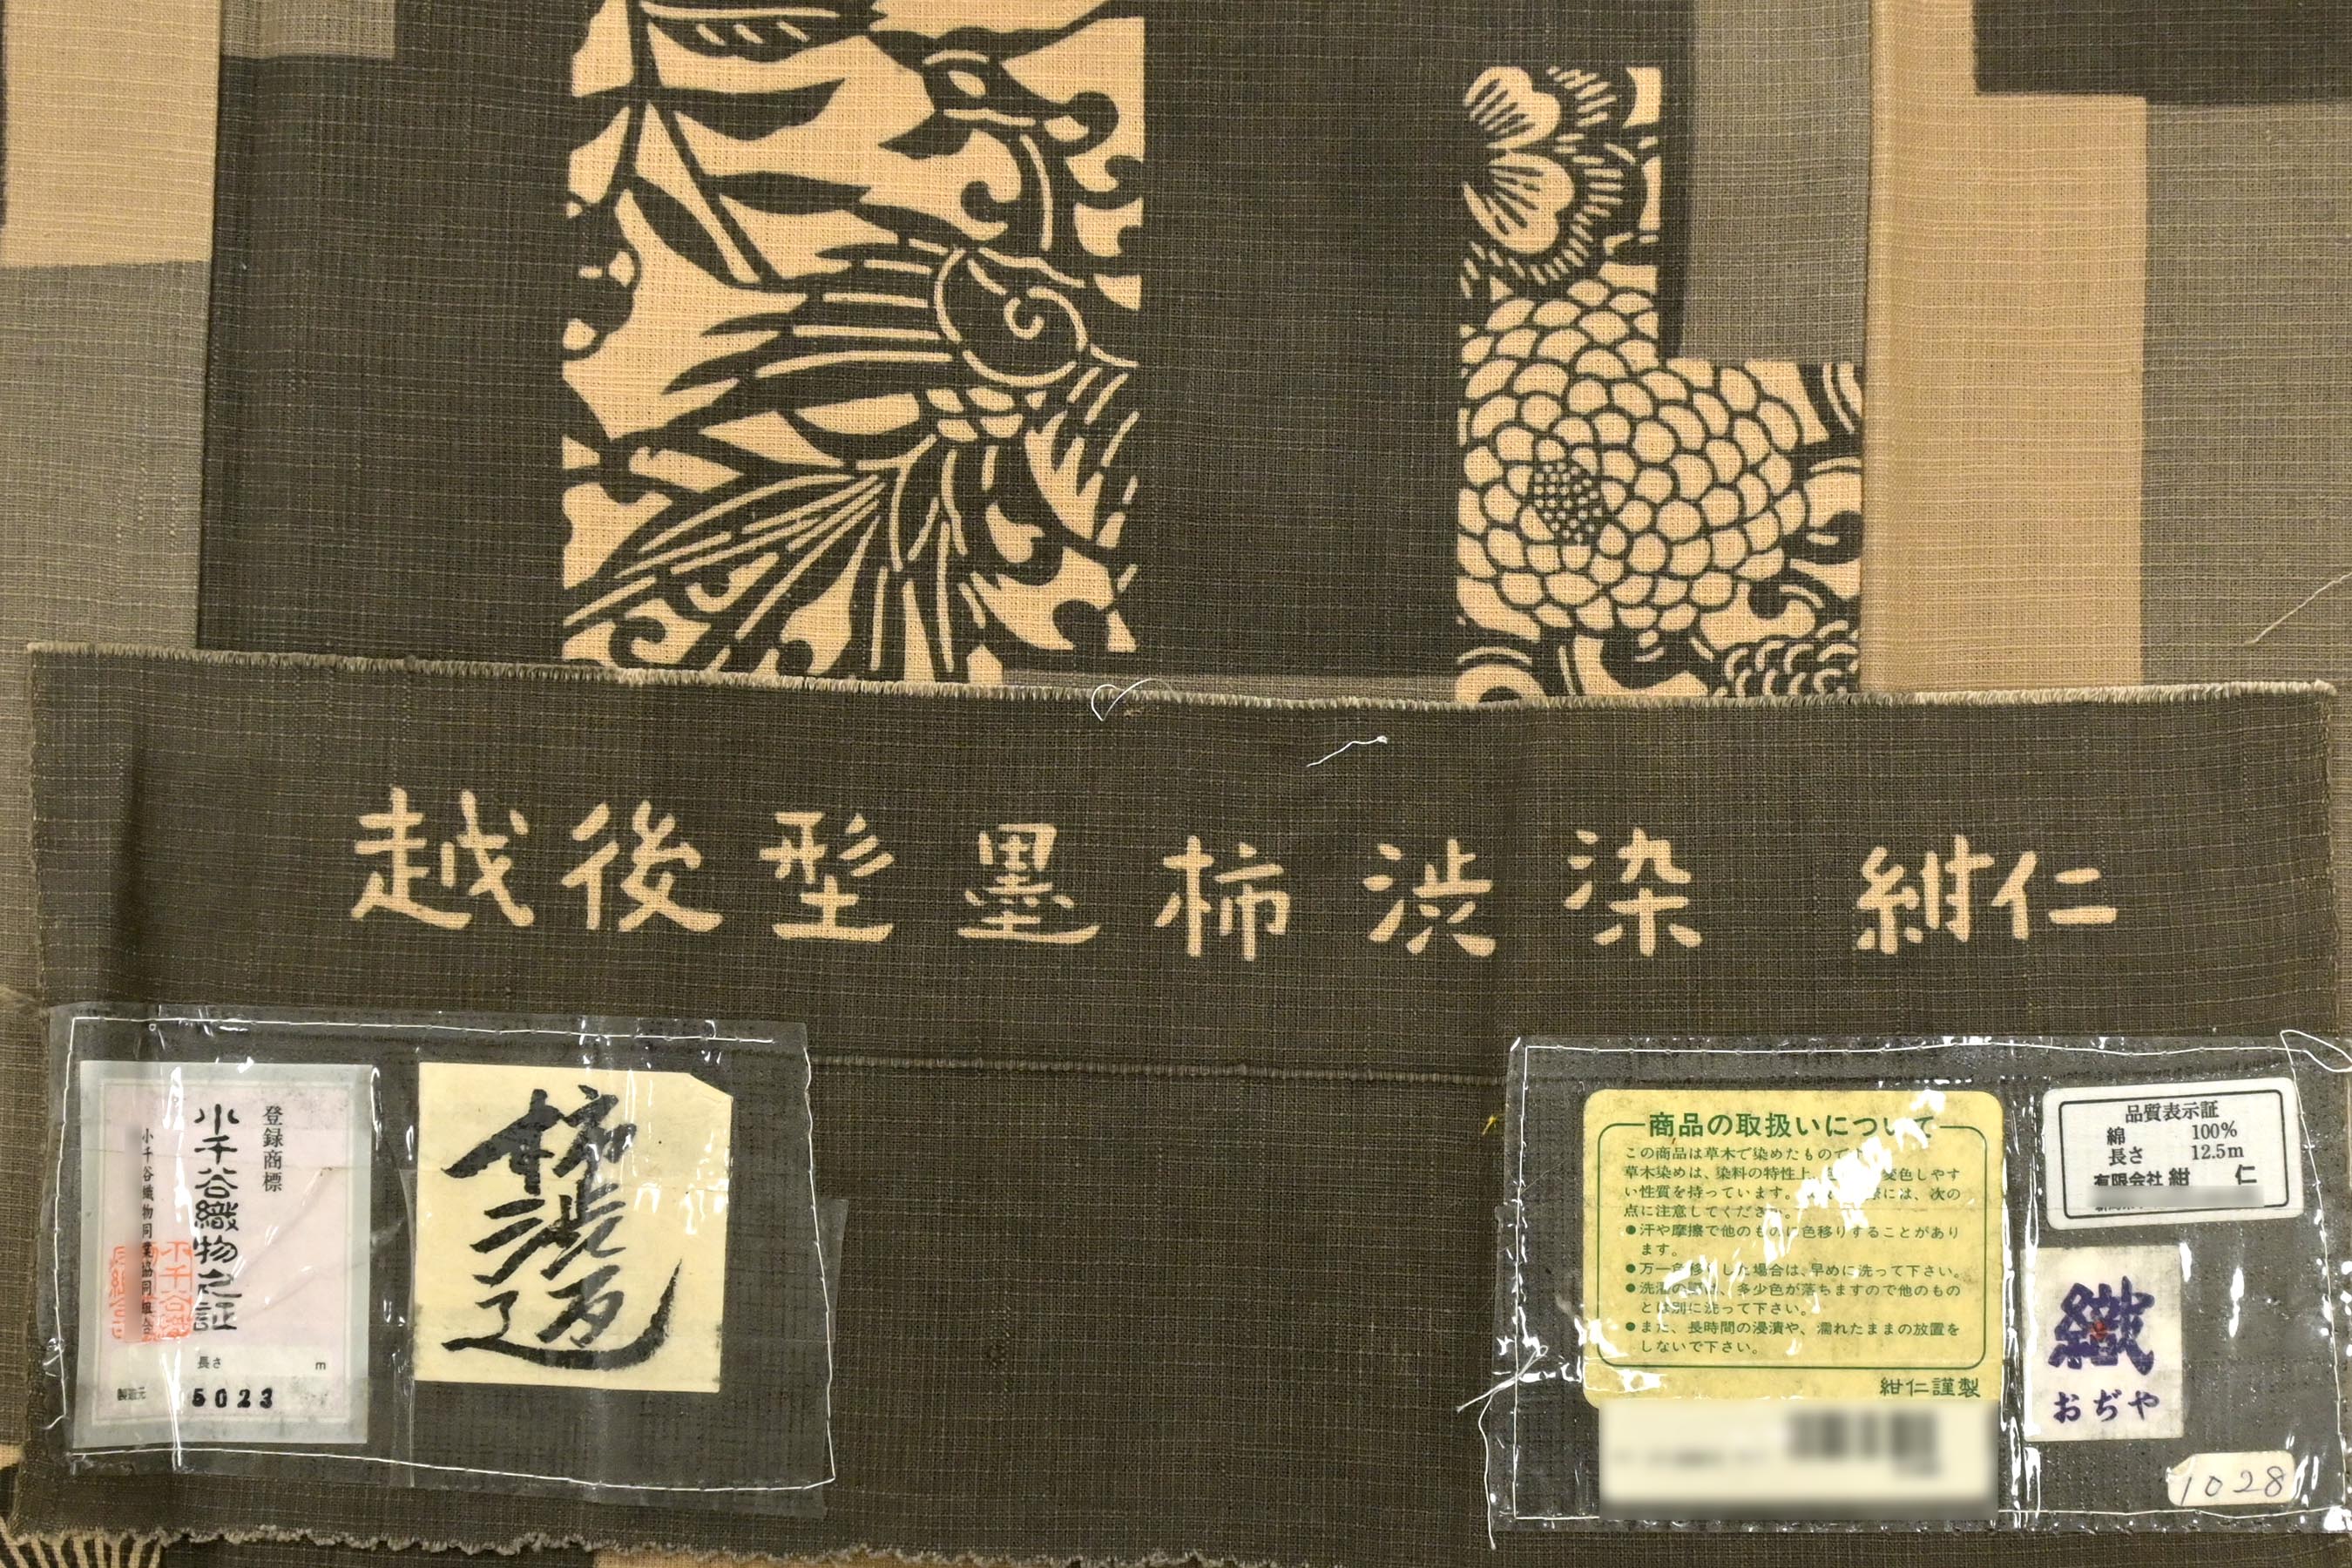 越後型墨柿渋染 紺仁
登録商標
小千谷織物之証
小千谷織物同業協同組合
長さ m
製造元 5023
柿渋
商品の取扱いについて
この商品は草木で染めたものです
草木染めは、染料の特性上、変色しやす
い性質を持っています。には、次の
点に注意してください。
●汗や摩擦で他のものに色移りすることがあり
ます。
●万一色移りした場合は、早めに洗って下さい。
●洗濯の際は、多少色が落ちますので他のもの
とは別に洗って下さい。
●また、長時間の浸漬や、濡れたままの放置を
しないで下さい。
紺仁謹製
品質表示証
綿 100%
長さ 12.5m
有限会社 紺仁
織
おぢや
1028